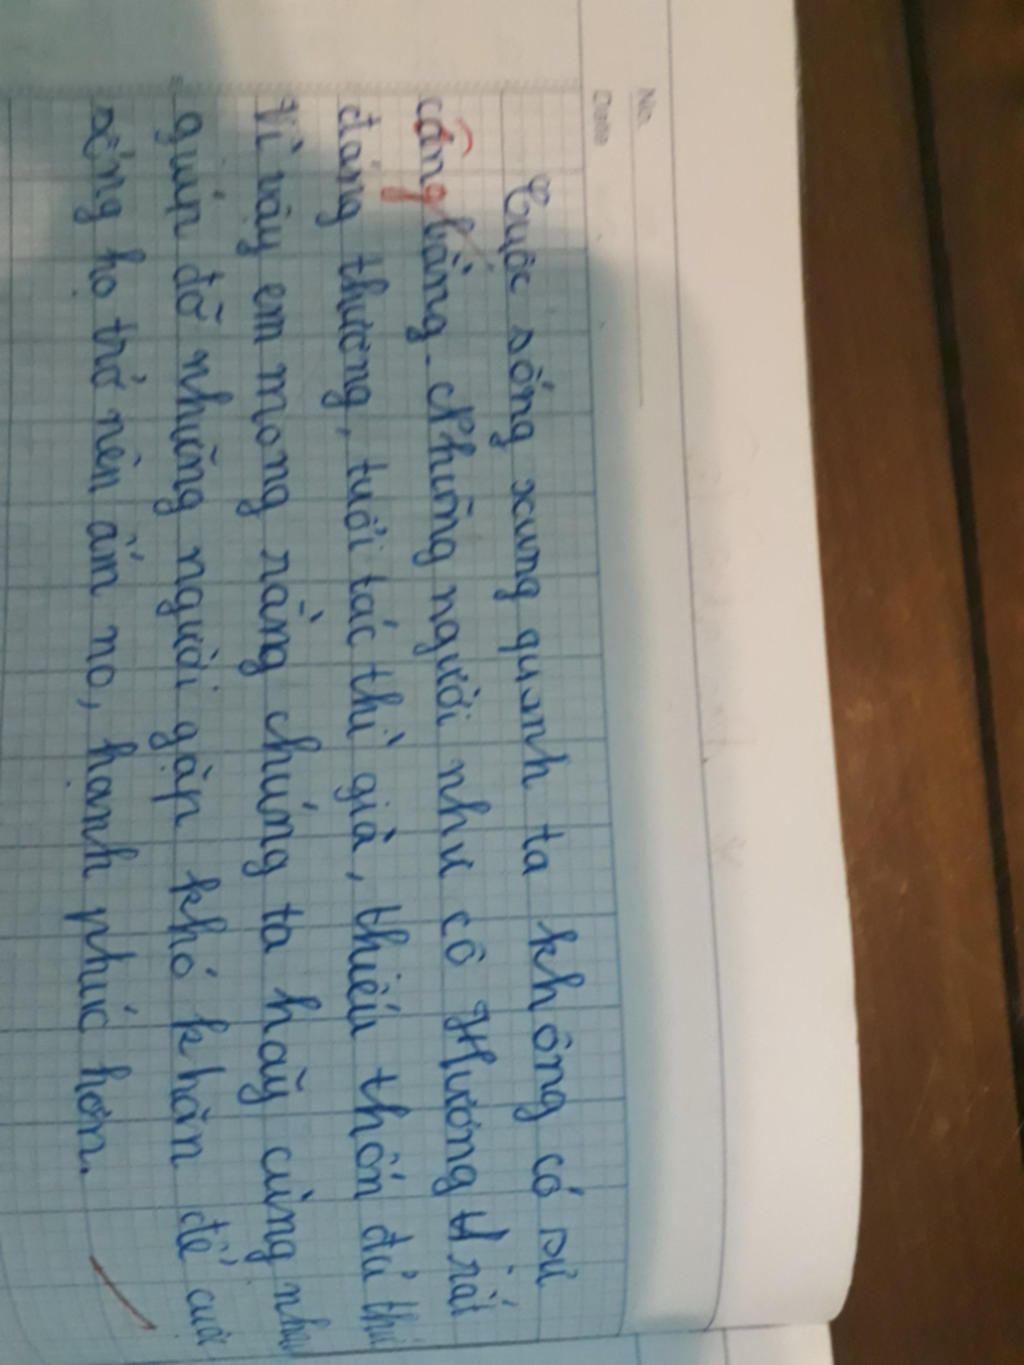 No.
Date
Cuộc sống xung quanh ta không có sự
công bằng. Những người như cô Hương rất
đáng thương, tuổi tác thì già, thiếu thốn đủ thứ
Vì vậy em mong rằng chúng ta hãy cùng nhau
giúp đỡ những người gặp khó khăn để cuộc
sống họ trở nên ấm no, hạnh phúc hơn.